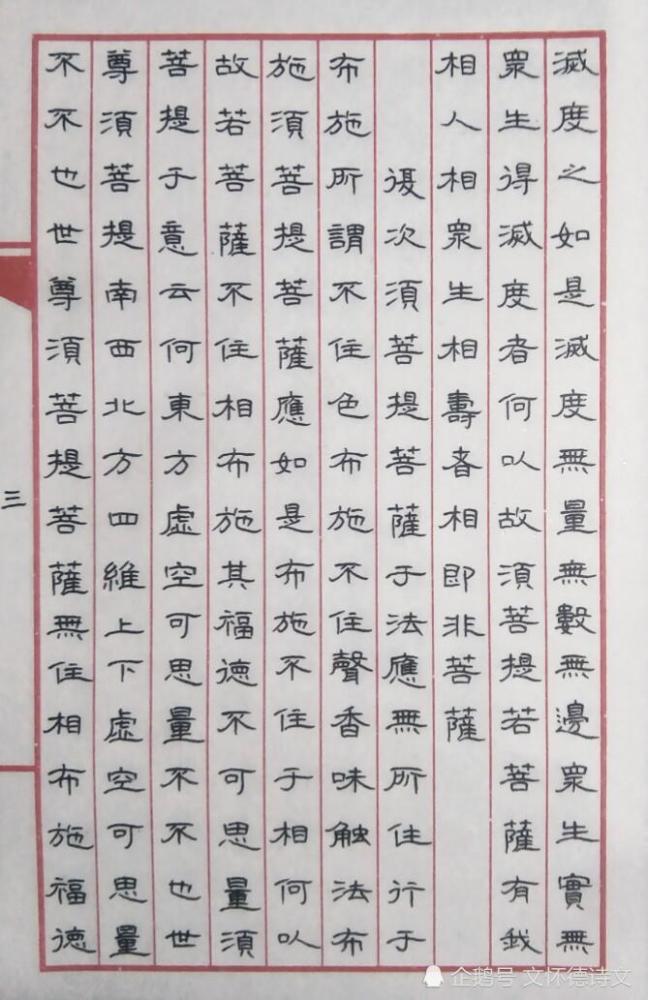 滅度之如是滅度無量無數無邊衆生實無
衆生得滅度者何以故須菩提若菩薩有我
相人相衆生相壽者相即非菩薩
復次須菩提菩薩于法應無所住行于
布施所謂不住色布施不住聲香味触法布
施須菩提菩薩應如是布施不住于相何以
故若菩薩不住相布施其福德不可思量須
菩提于意云何東方虛空可思量不不也世
尊須菩提南西北方四維上下虛空可思量
不不也世尊須菩提菩薩無住相布施福德
三
企鹅号 文怀德诗文